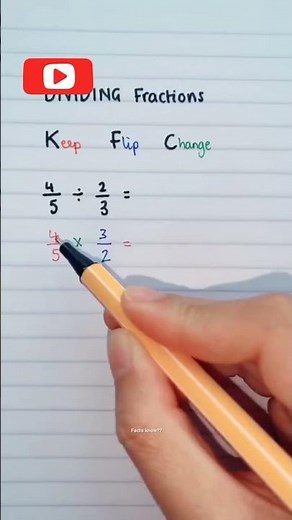 DIVIDING Fractions
Keep Flip Change
4/5 ÷ 2/3 =
4/5 x 3/2 =
Facts know??